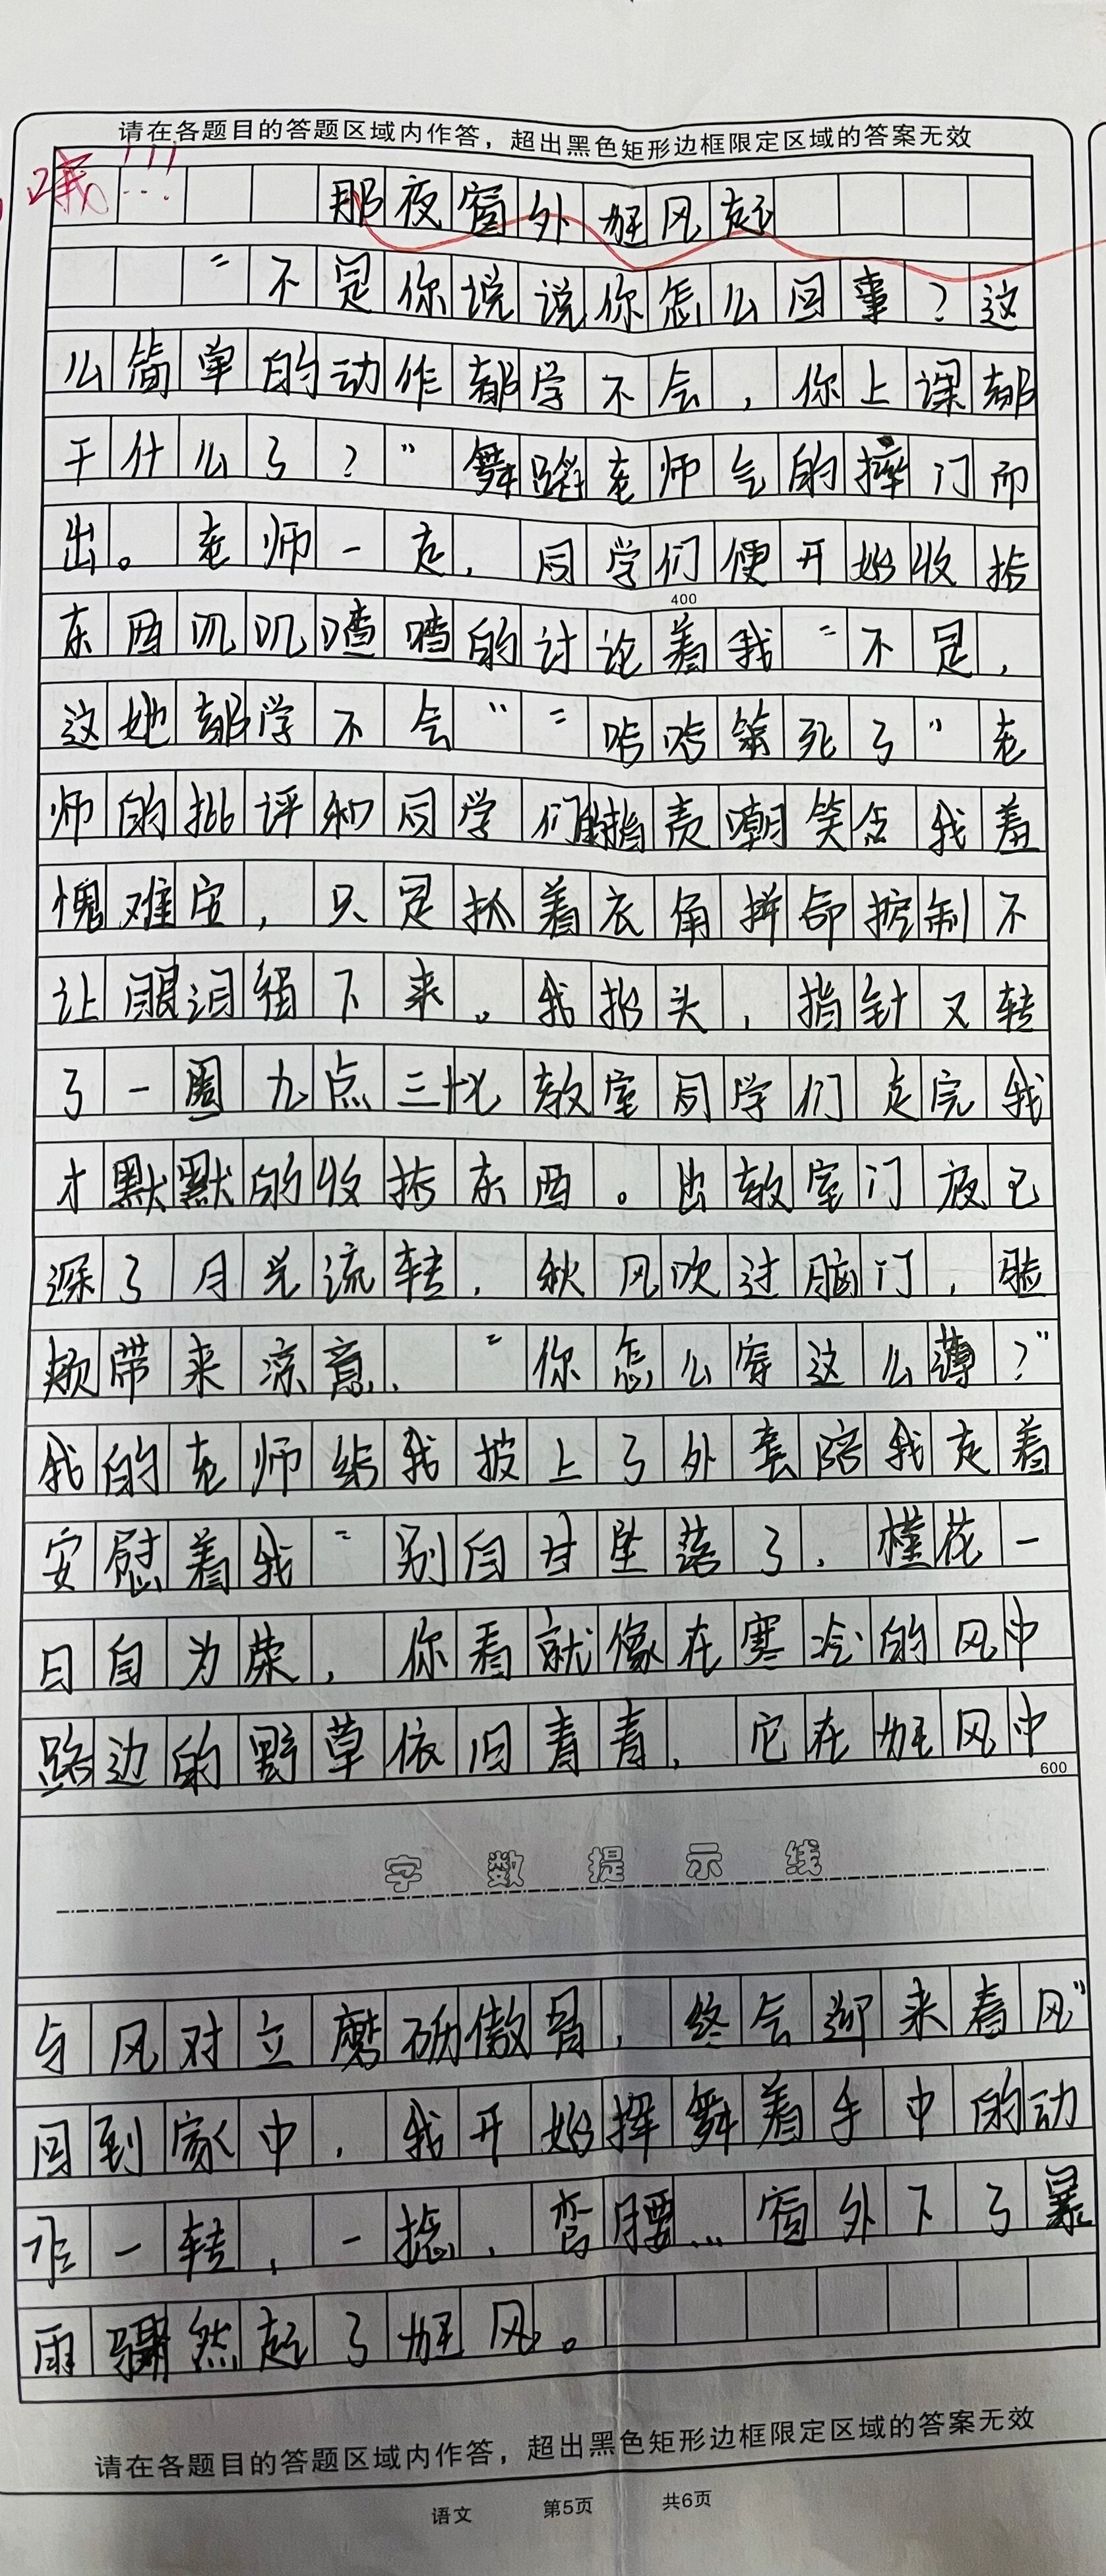 请在各题目的答题区域内作答，超出黑色矩形边框限定区域的答案无效
那夜窗外狂风起
"不是你说说你怎么回事？这
么简单的动作都学不会，你上课都
干什么了？"舞蹈老师气的摔门而
出。老师一走，同学们便开始收拾
400
东西叽叽喳喳的讨论着我"不是，
这她都学不会""哈哈笑死了"老
师的批评和同学们的指责嘲笑令我羞
愧难安，只是抓着衣角拼命控制不
让眼泪留下来。我抬头，指针又转
了一圈九点三十，教室同学们走完我
才默默的收拾东西。出教室门夜已
深了月光流转，秋风吹过脑门，脸
颊带来凉意，"你怎么穿这么薄？"
我的老师给我披上了外套陪我走着
安慰着我"别自甘坠落了，槿花一
日自为荣，你看就像在寒冷的风中
路边的野草依旧青青，它在狂风中
600
字数提示线
与风对立磨砺傲骨，终会迎来春风"
回到家中，我开始挥舞着手中的动
作一转，一抬，弯腰…窗外下了暴
雨骤然起了狂风。
请在各题目的答题区域内作答，超出黑色矩形边框限定区域的答案无效
语文 第5页 共6页